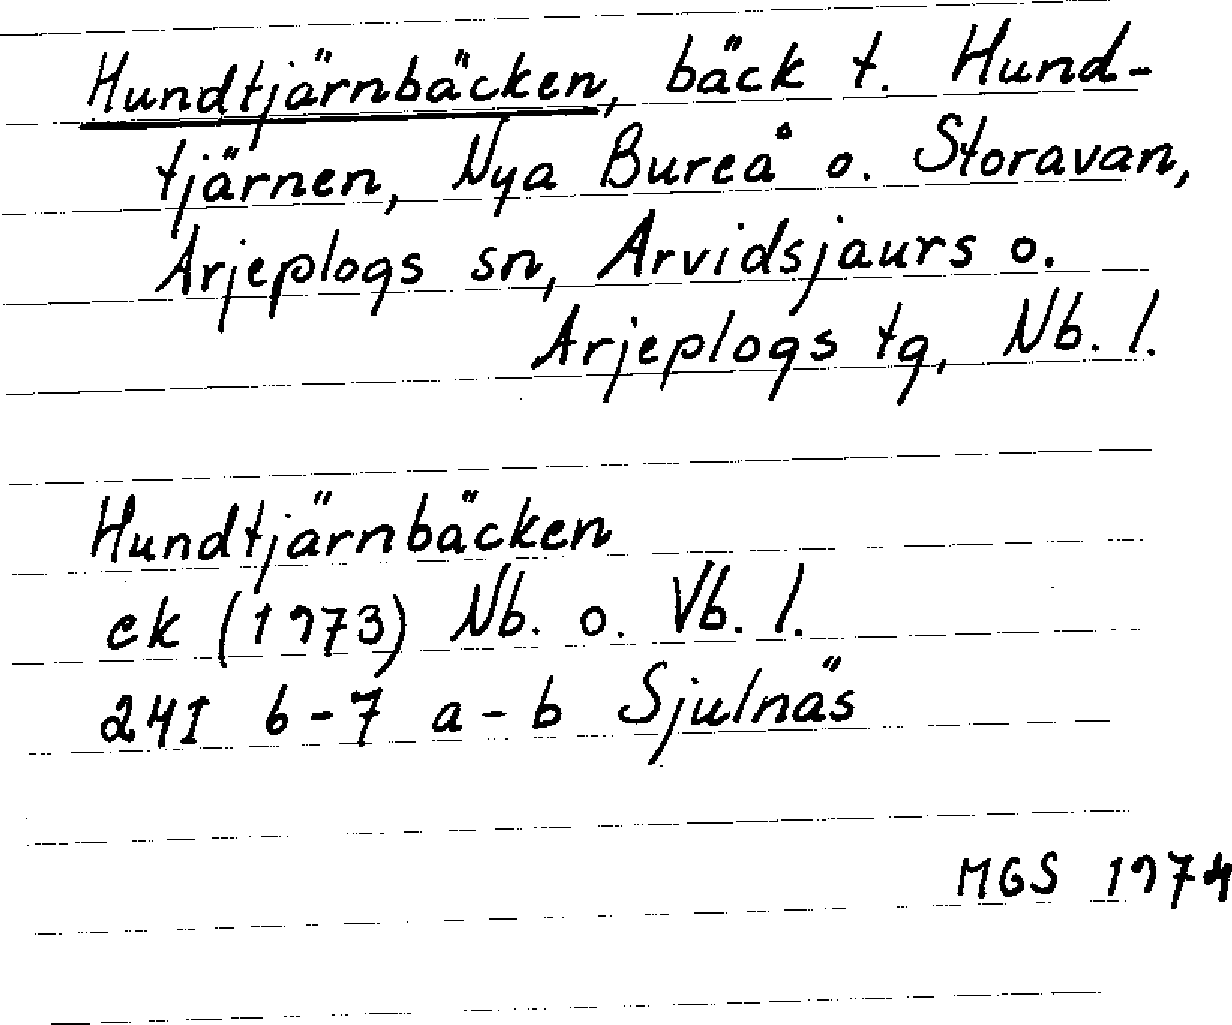 Hundtjärnbäcken, bäck t. Hund-
tjärnen, Nya Bureå o. Storavan,
Arjeplogs sn, Arvidsjaurs o.
Arjeplogs tg, Nb. l.
Hundtjärnbäcken
ek (1973) Nb. o. Vb. l.
24I 6-7 a-b Sjulnäs
MGS 1974